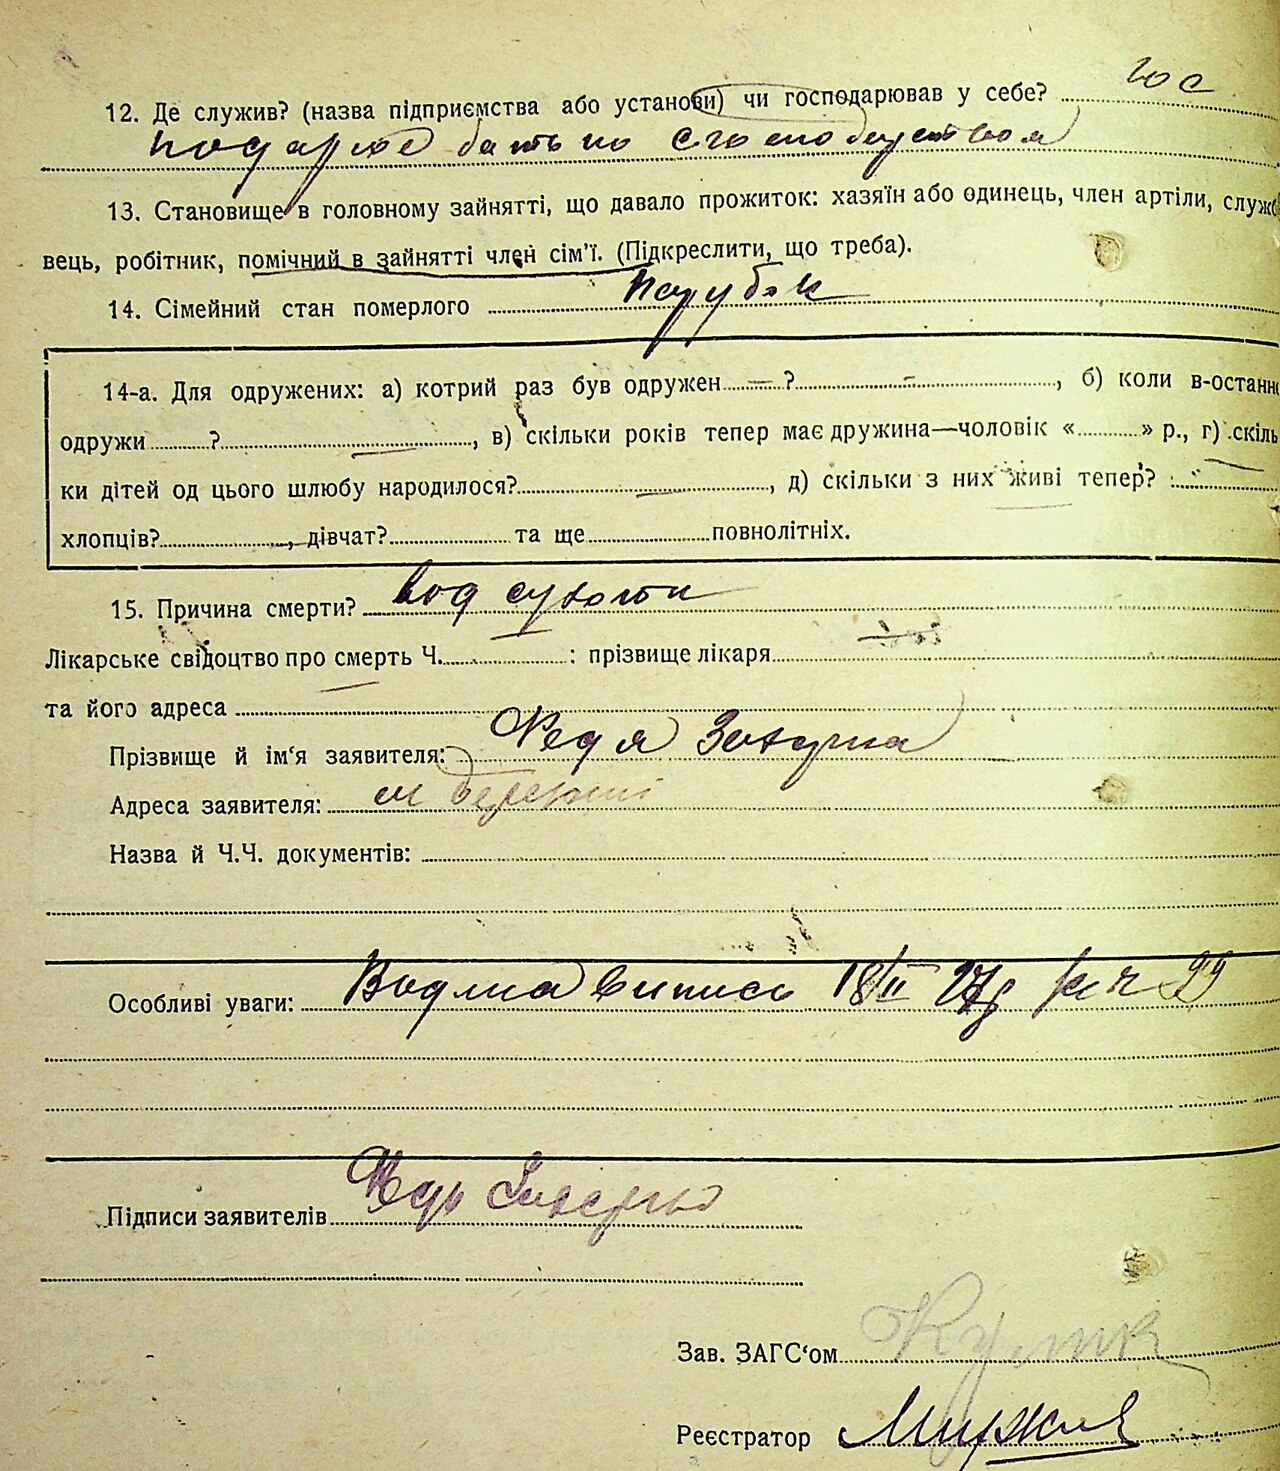 12. Де служив? (назва підприємства або установи) чи господарював у себе? гос
подарює батьно
13. Становище в головному зайнятті, що давало прожиток: хазяїн або одинець, член артілі, служб
вець, робітник, помічний в зайнятті член сім'ї. (Підкреслити, що треба).
14. Сімейний стан померлого парубок
14-а. Для одружених: а) котрий раз був одружен — ? –, б) коли в-останн
одружи ? —, в) скільки років тепер має дружина—чоловік « » р., г) скіль
ки дітей од цього шлюбу народилося? —, д) скільки з них живі тепер?
хлопців? , дівчат? та ще повнолітніх.
15. Причина смерти? вод сухоти
Лікарське свідоцтво про смерть Ч. : прізвище лікаря
та його адреса
Прізвище й ім'я заявителя: Федя
Адреса заявителя:
Назва й Ч.Ч. документів:
Особливі уваги: Видма випись 18/II 27р
Підписи заявителів
Зав. ЗАГС'ом
Реєстратор